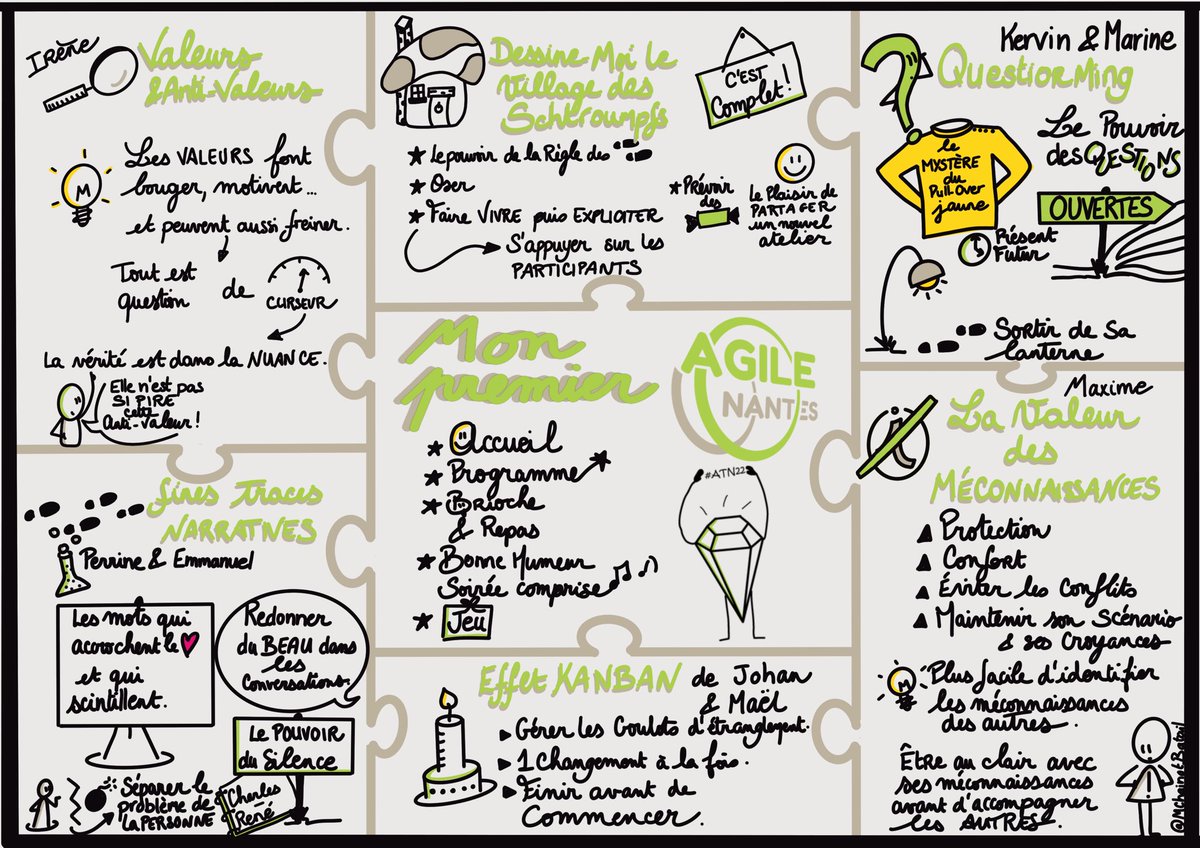 Irène
Valeurs
& Anti-Valeurs
Les VALEURS font
bouger, motivent...
et peuvent aussi freiner.
Tout est
question de CURSEUR
La vérité est dans la NUANCE.
Elle n'est pas
SI PIRE
cette
Anti-Valeur !
M
Dessine Moi Le
Village des
Schtroumpfs
C'EST
Complet !
Le pouvoir de la Règle des
Oser
Faire VIVRE puis EXPLICITER
S'appuyer sur les
PARTICIPANTS
Prévoir
des
Le Plaisir de
PARTAGER
un nouvel
atelier
Kervin & Marine
QuestiorMing
Le Pouvoir
des QUESTIONS
OUVERTES
le
MYSTÈRE
du
Pull Over
jaune
Présent
Futur
Sortir de Sa
Lanterne
Mon
premier
AGILE
NANTES
#ATN22
Accueil
Programme
Brioche
& Repas
Bonne Humeur
Soirée comprise
Jeu
fines Traces
NARRATIVES
Perrine & Emmanuel
Les mots qui
accrochent le
et qui
scintillent.
Redonner
du BEAU dans
les
Conversations.
Le POUVOIR
du Silence
Séparer le
problème de
la PERSONNE
Charles
René
Effet KANBAN de Johan
& Maël
Gérer les Goulots d'étranglement.
1 Changement à la fois.
Finir avant de
Commencer.
Maxime
La Valeur
des
MÉCONNAISSANCES
Protection
Confort
Éviter les Conflits
Maintenir son Scénario
& ses Croyances
M
Plus facile d'identifier
les méconnaissances
des autres.
Être au clair avec
ses méconnaissances
avant d'accompagner
les AUTRES.